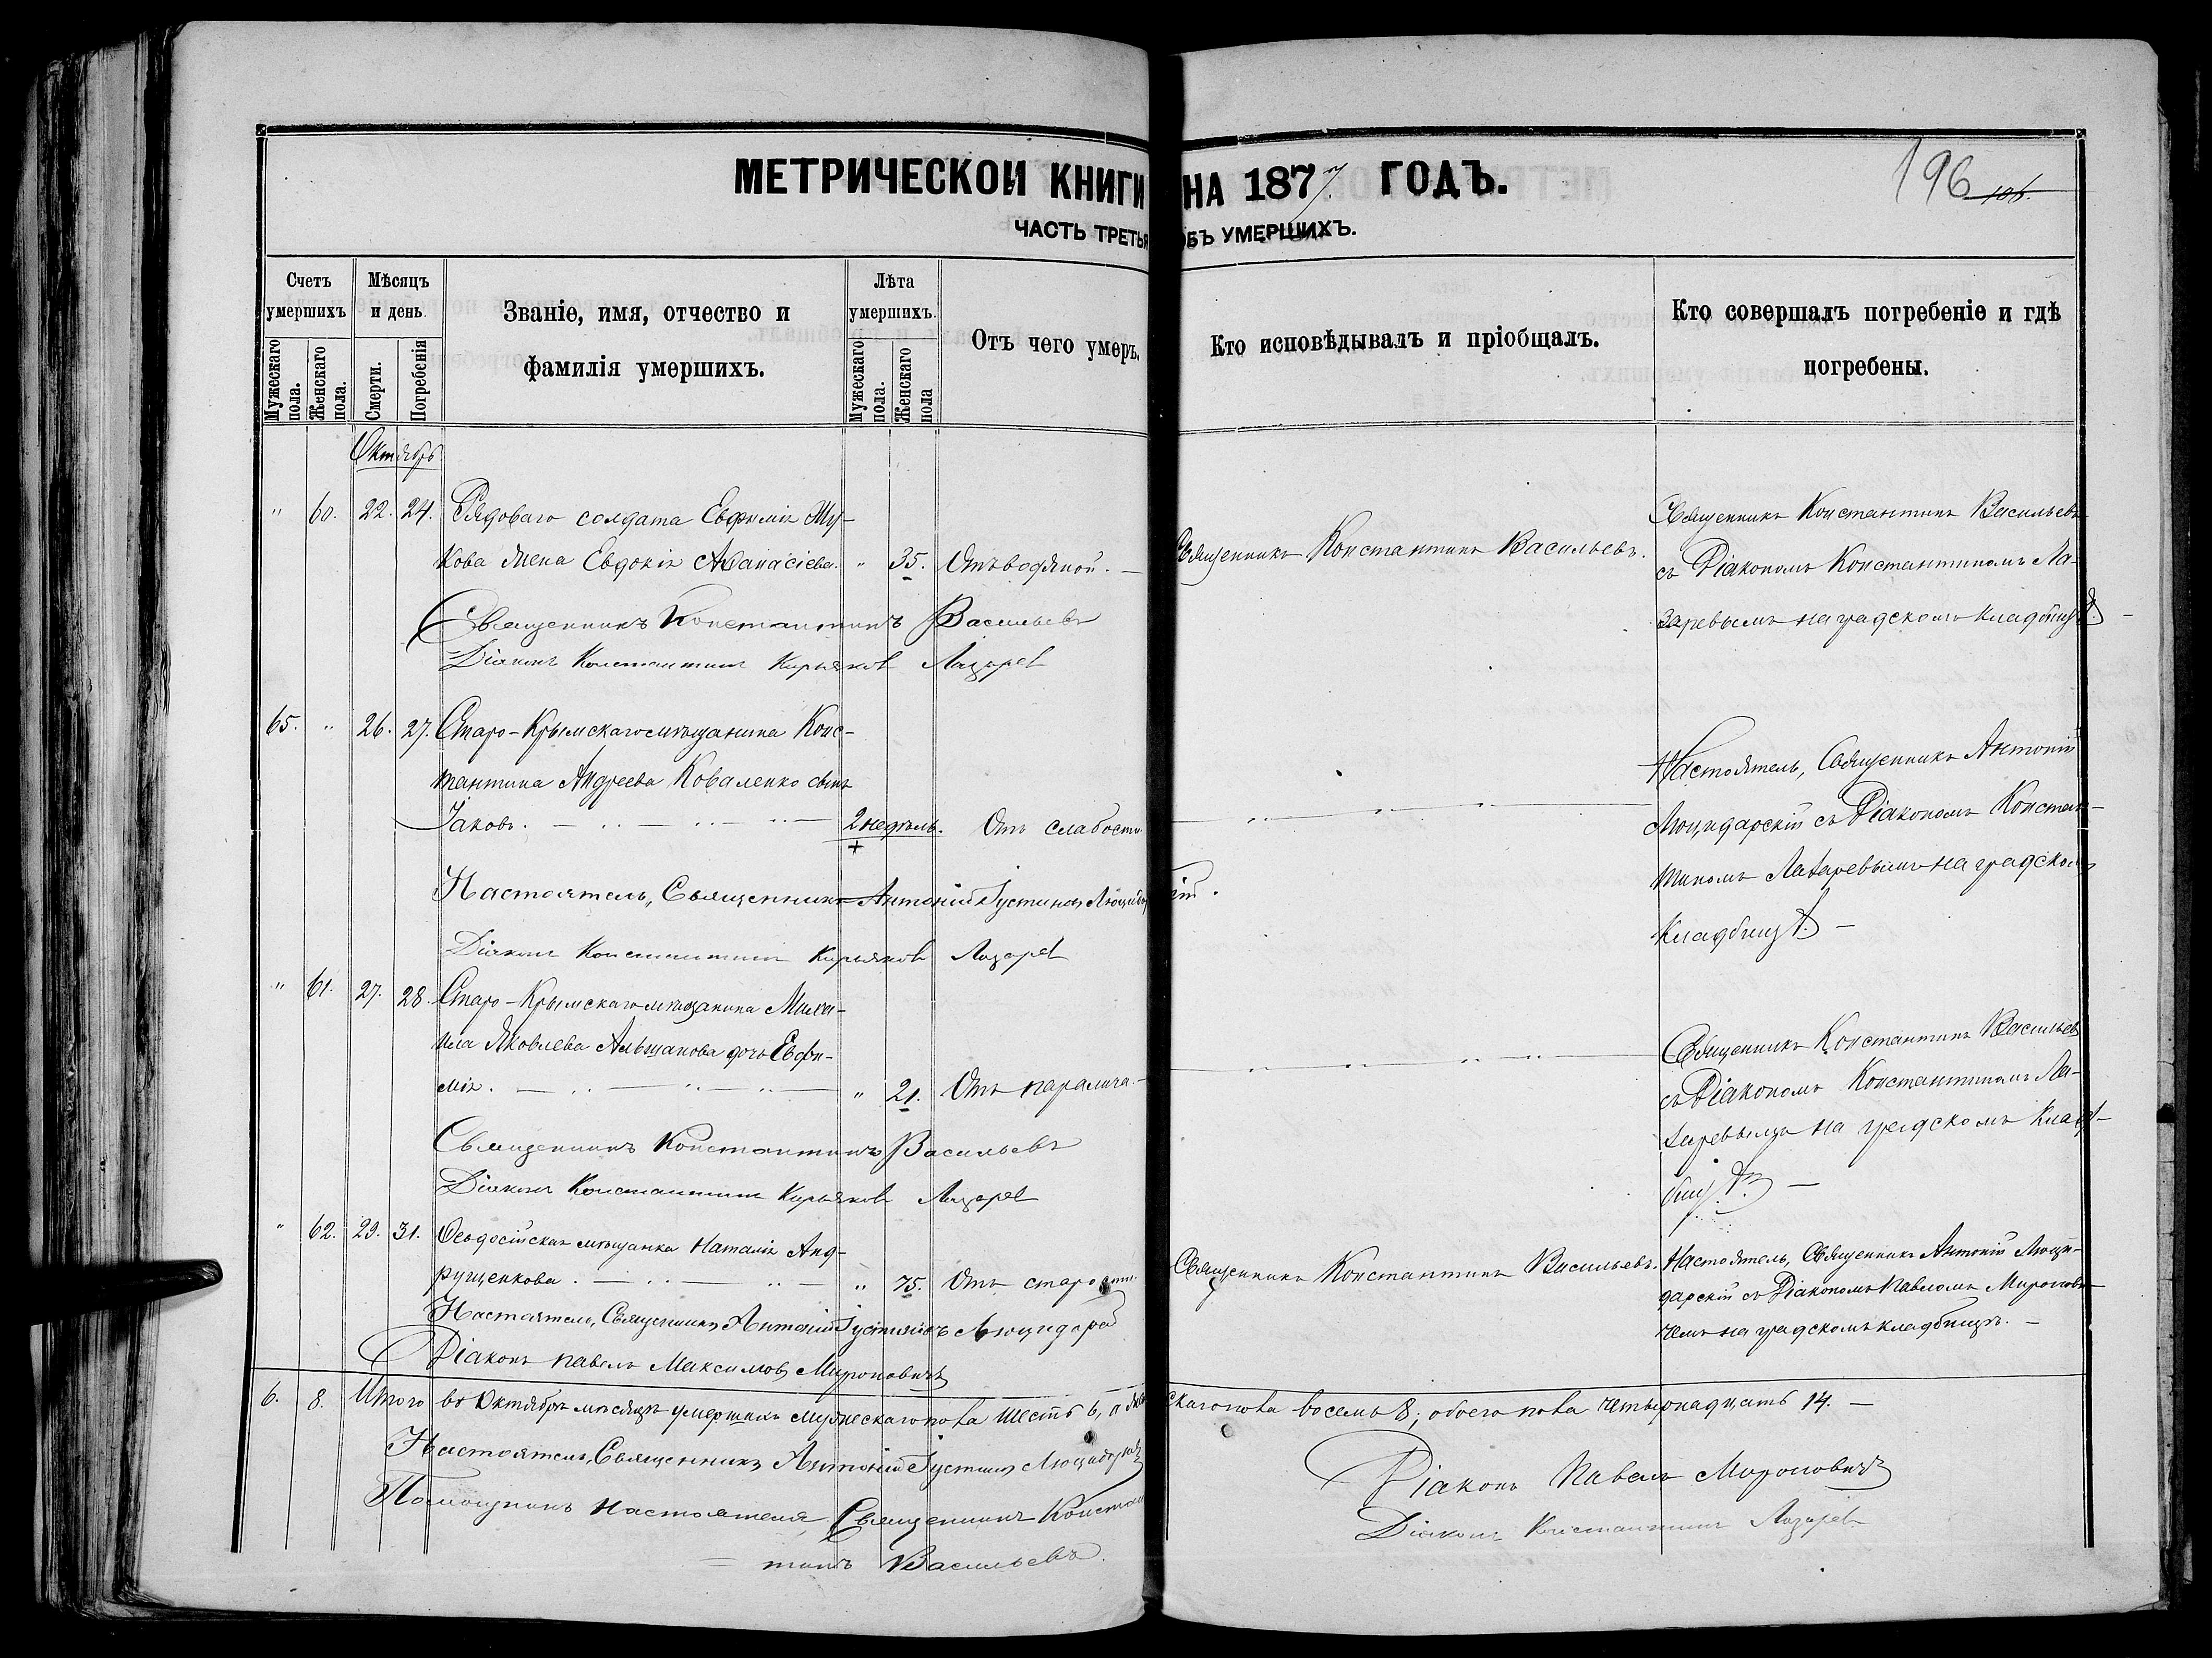 МЕТРИЧЕСКОЙ КНИГИ НА 1877 ГОДЪ.
196 106.
ЧАСТЬ ТРЕТЬЯ ОБЪ УМЕРШИХЪ.
Счетъ умершихъ
Мужескаго пола.
Женскаго пола.
Мѣсяцъ и день
Смерти.
Погребенія
Званіе, имя, отчество и
фамилія умершихъ.
Лѣта умершихъ.
Мужескаго пола.
Женскаго пола
Отъ чего умеръ.
Кто исповѣдывалъ и пріобщалъ.
Кто совершалъ погребеніе и гдѣ
погребены.
Октябрь
" 60. 22. 24. Рядоваго солдата Евфимія Жу-
кова жена Евдокія Аѳанасіева. " 35. Отъ водяной. —
Священникъ Константинъ Васильевъ.
Священникъ Константинъ Васильевъ
съ Діакономъ Константиномъ Ла-
заревымъ на градскомъ кладбищѣ. —
Священникъ Константинъ Васильевъ
Діаконъ Константинъ Кирьяковъ Лазаревъ
65. " 26. 27. Старо-Крымскаго мѣщанина Конс-
тантина Андреева Коваленко сынъ
Іаковъ. 2 недѣль. Отъ слабости
Настоятель, Священникъ Антоній
Люцидарскій съ Діакономъ Констан-
тиномъ Лазаревымъ на градскомъ
кладбищѣ. —
Настоятель, Священникъ Антоній Іустиновъ Люцидарскій.
Діаконъ Константинъ Кирьяковъ Лазаревъ
" 61. 27. 28. Старо-Крымскаго мѣщанина Миха-
ила Яковлева Альшанова дочь Евфи-
мія. " 21. Отъ паралича. —
Священникъ Константинъ Васильевъ
съ Діакономъ Константиномъ Ла-
заревымъ на градскомъ клад-
бищѣ. —
Священникъ Константинъ Васильевъ
Діаконъ Константинъ Кирьяковъ Лазаревъ
" 62. 29. 31. Ѳеодосійская мѣщанка Наталія Анд-
рущенкова. " 75. Отъ старости.
Священникъ Константинъ Васильевъ.
Настоятель, Священникъ Антоній Люци-
дарскій съ Діакономъ Павломъ Миронови-
чемъ на градскомъ кладбищѣ. —
Настоятель, Священникъ Антоній Іустиновъ Люцидарскій
Діаконъ Павелъ Максимовъ Мироновичъ
6. 8. Итого въ Октябрѣ мѣсяцѣ умершихъ мужескаго пола шесть 6, а женскаго пола восемь 8; обоего пола четырнадцать 14. —
Настоятель, Священникъ Антоній Іустиновъ Люцидарскій
Помощникъ Настоятеля Священникъ Констан-
тинъ Васильевъ.
Діаконъ Павелъ Мироновичъ
Діаконъ Константинъ Лазаревъ